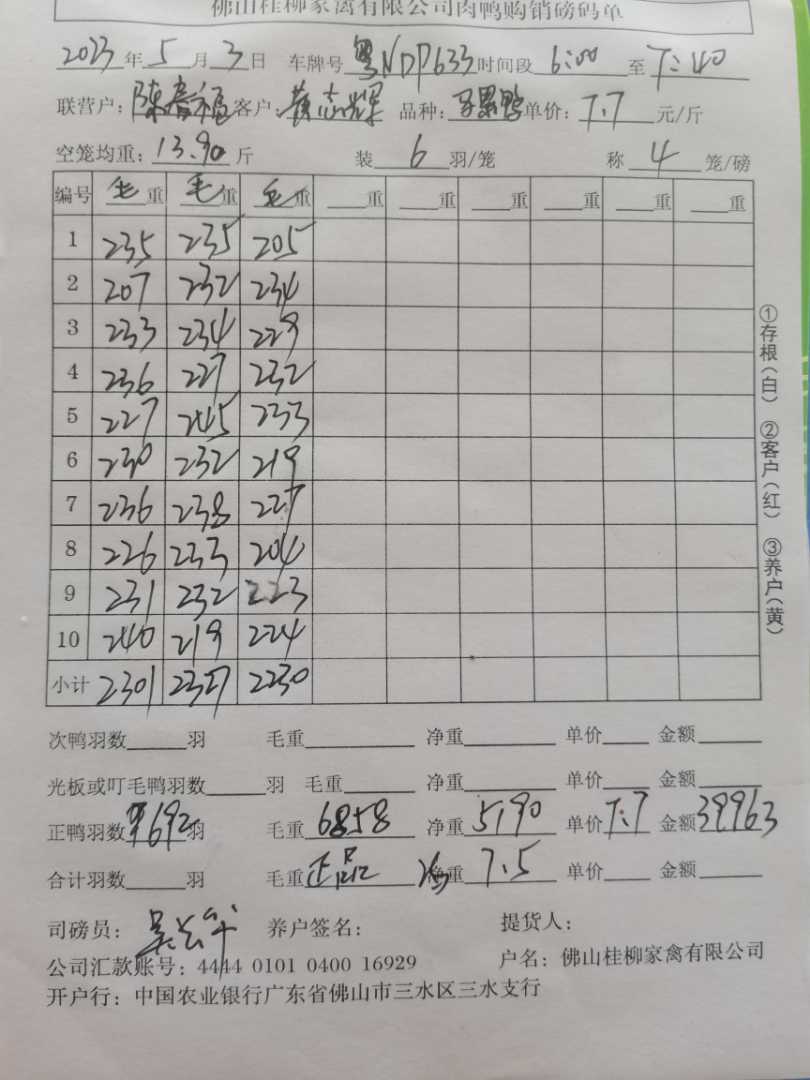 佛山桂柳家禽有限公司肉鸭购销磅码单
2023年5月3日 车牌号粤NDP633时间段6:00至7:40
联营户:陈春福客户:黄志辉 品种: 单价:7.7元/斤
空笼均重:13.90斤 装6羽/笼 称4笼/磅
编号 毛重 毛重 毛重 重 重 重 重 重 重
1 235 235 205
2 207 232 234
3 233 234 229
4 236 227 232
5 227 245 233
6 230 232 219
7 236 238 227
8 226 233 204
9 231 232 223
10 240 219 224
小计 2301 2327 2230
次鸭羽数 羽 毛重 净重 单价 金额
光板或叮毛鸭羽数 羽 毛重 净重 单价 金额
正鸭羽数692羽 毛重6858 净重5190 单价7.7 金额39963
合计羽数 羽 毛重正品 净重7.5 单价 金额
司磅员: 养户签名: 提货人:
公司汇款账号:4444 0101 0400 16929 户名:佛山桂柳家禽有限公司
开户行:中国农业银行广东省佛山市三水区三水支行
①存根(白) ②客户(红) ③养户(黄)